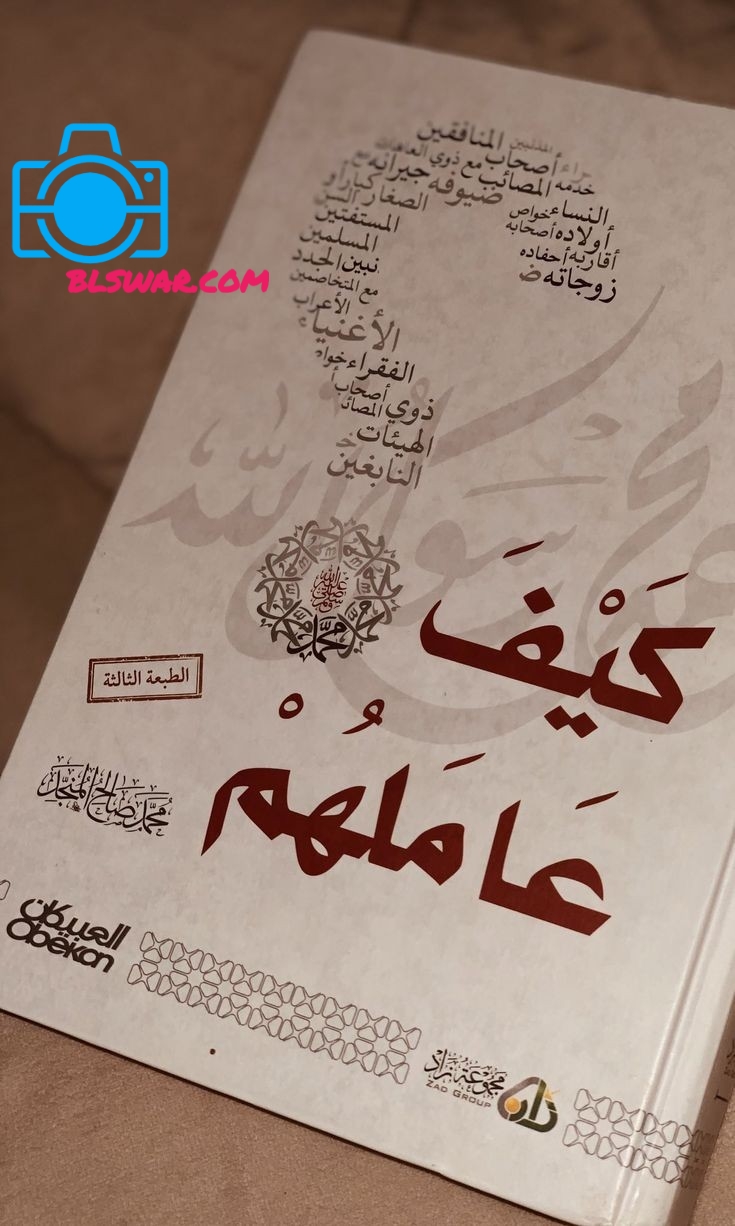 BLSWAR.COM
المنافقين
المذنبين
أصحاب
ذوي العاهات
خدمه
المصائب مع
ضيوفه جيرانه
النساء خواص
الصغار كبار
أولاده أصحابه
المستفتين
أقاربه أحفاده
المسلمين
زوجاته
مع المتخاصمين
الأعراب
الأغنياء
الفقراء
أصحاب
ذوي
الهيئات
النابغين
محمد رسول الله
صلى الله عليه وسلم
محمد
كَيْفَ
عَامَلَهُمْ
الطبعة الثالثة
محمد صالح المنجد
العبيكان
Obekan
مجموعة زاد
ZAD GROUP
زاد